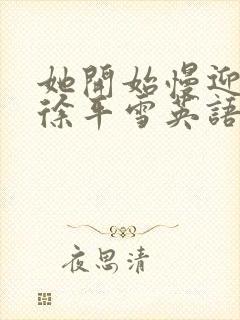 她開始慢迎
徐平雪英語
夜思清